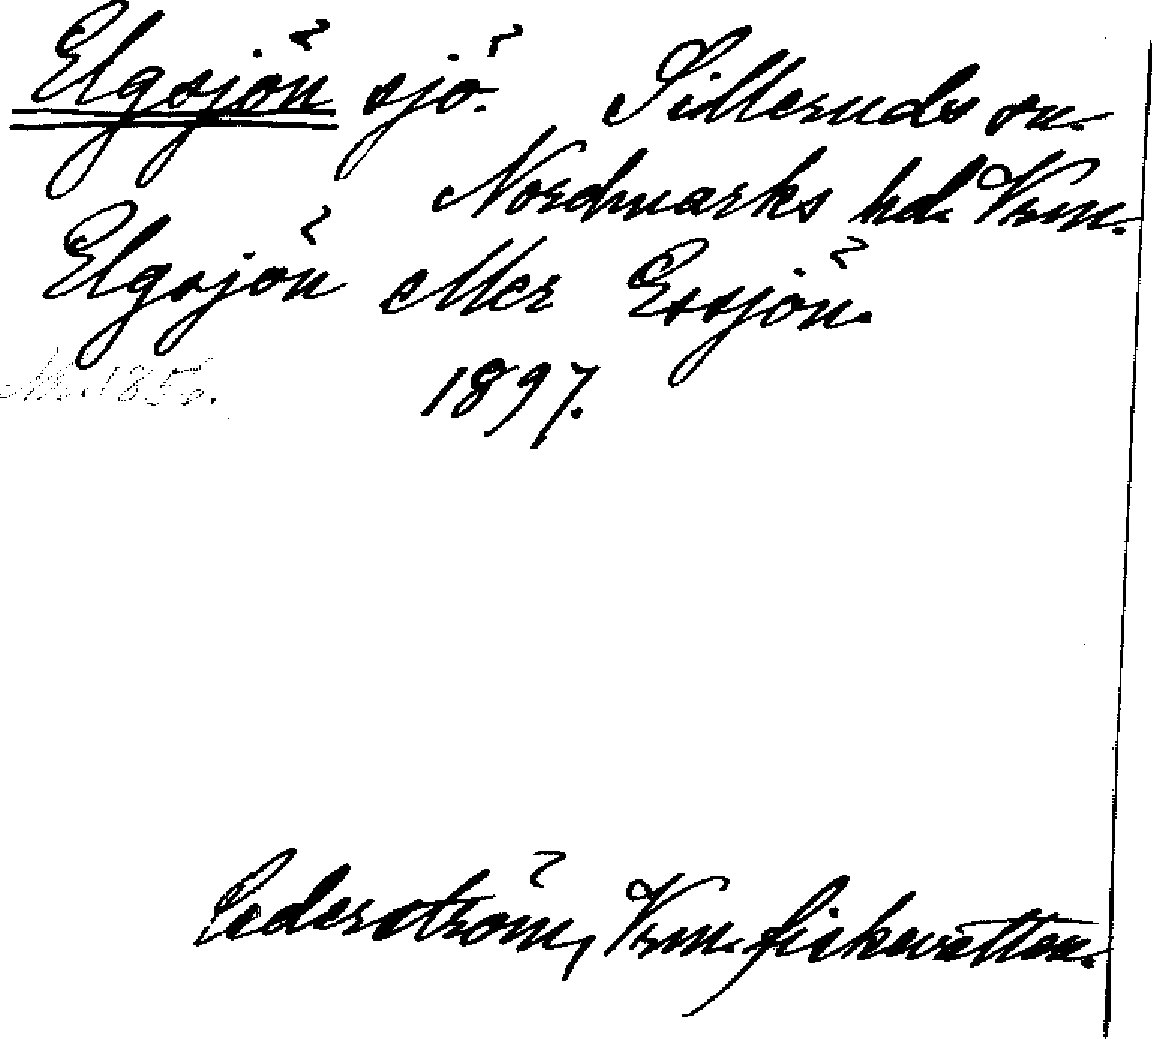 Elgsjön sjö. Silleruds sn.
Nordmarks hd. Vrm.
Elgsjön eller Essjön.
1897.
Cederström, Vrm. fiskevatten.